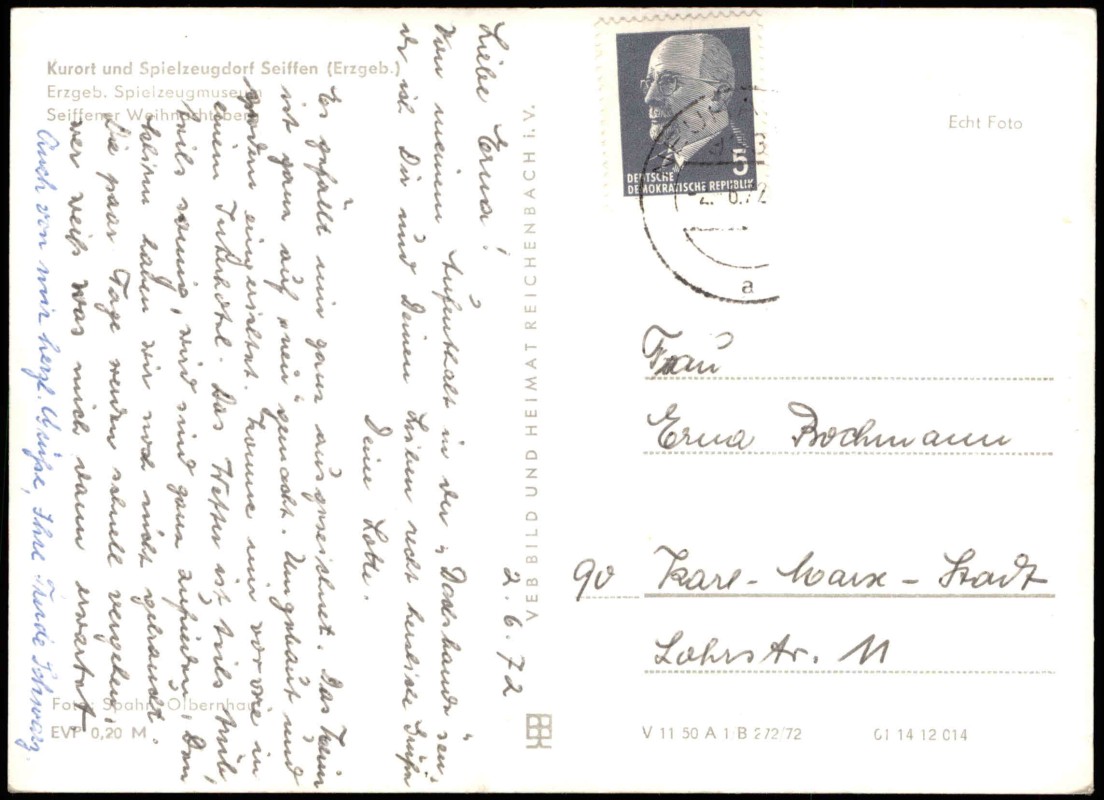 Kurort und Spielzeugdorf Seiffen (Erzgeb.)
Erzgeb. Spielzeugmuseum
Seiffener Weihnachtsberg
Echt Foto
DEUTSCHE
DEMOKRATISCHE REPUBLIK
5
2. 6.72
a
2. 6. 72
Liebe Erna!
Von meinem Aufenthalt in der
dir und Deinen Lieben recht herzliche Grüße
Deine Lotte.
Es gefällt mir ganz ausgezeichnet. Das Heim
ist ganz auf „neu" gemacht. Umgebaut und
modern eingerichtet. Komme mir vor wie in
einem Interhotel. Das Wetter ist teils trüb,
teils sonnig, wir sind ganz zufrieden. Den
haben wir noch nicht gebraucht.
Die paar Tage werden schnell vergehen,
wer weiß was mich dann erwartet
Auch von mir herzl. Grüße, Ihre Schwarz.
VEB BILD UND HEIMAT REICHENBACH i. V.
Frau
Erna Bochmann
90 Karl-Marx-Stadt
Lohrstr. 11
Foto: Spahn, Olbernhau
EVP 0,20 M
V 11 50 A 1 B 272/72
01 14 12 014